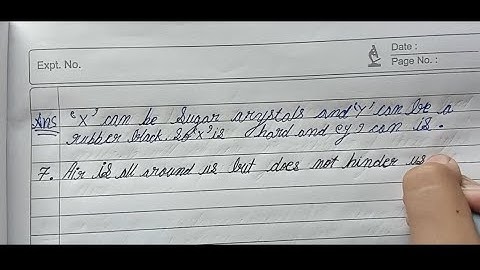 Expt. No.
Date :
Page No. :
Ans 'X' can be Sugar crystals and 'Y' can be a
rubber block. 'X' is hard and 'y' can is.
7. Air is all around us but does not hinder us